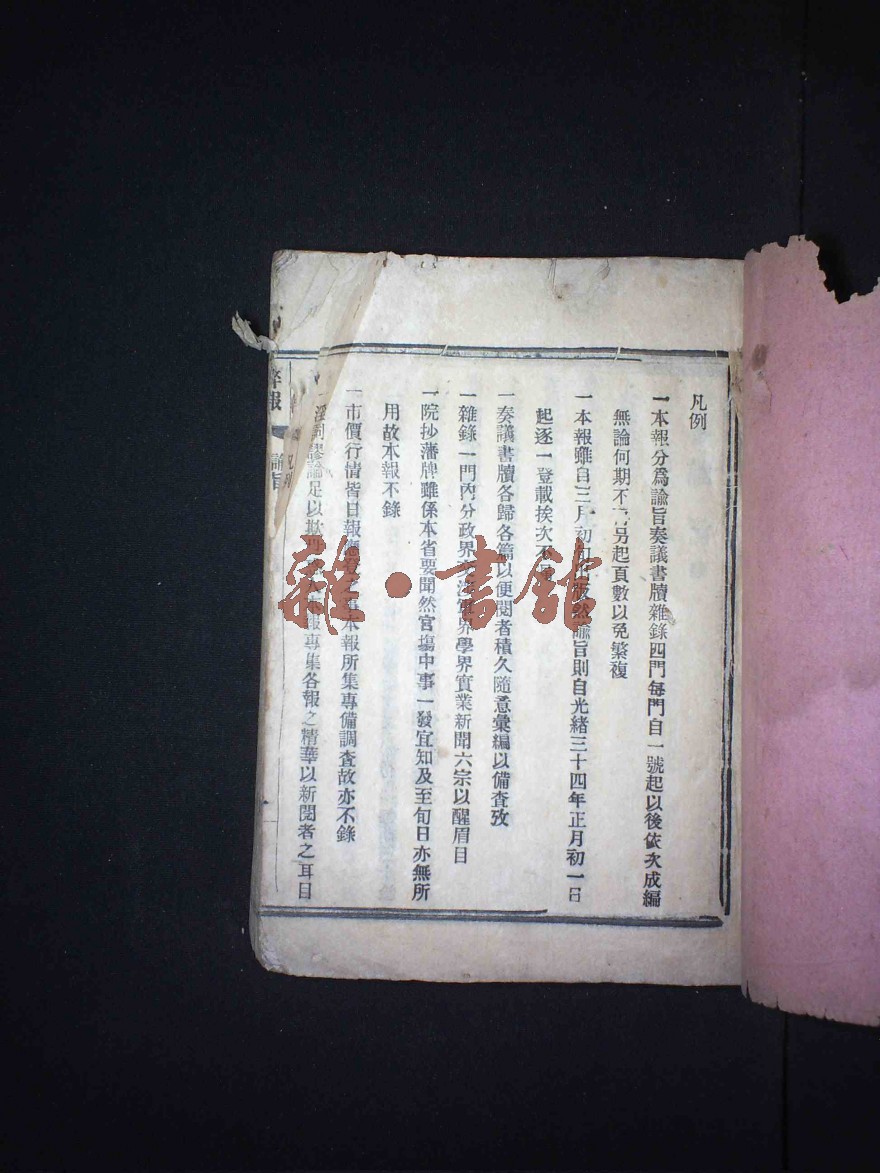 凡例
一本報分爲諭旨奏議書牘雜錄四門每門自一號起以後依次成編
無論何期不另起頁數以免繁複
一本報雖自三月初旬出版然諭旨則自光緒三十四年正月初一日
起逐一登載挨次不
一奏議書牘各歸各篇以便閱者積久隨意彙編以備查攷
一雜錄一門內分政界軍界學界實業新聞六宗以醒眉目
一院抄藩牌雖係本省要聞然官塲中事一發宜知及至旬日亦無所
用故本報不錄
一市價行情皆日報應登之事本報所集專備調查故亦不錄
一淫詞謬論足以本報專集各報之精華以新閱者之耳目
報 諭旨
凡例
雜·書館